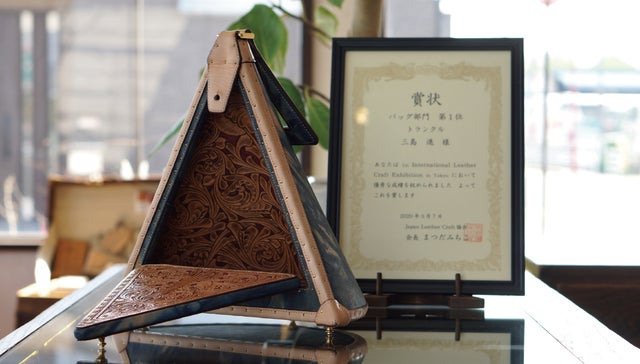 賞状
バッグ部門 第1位
トランクル
三島 進 様
あなたは 1st International Leather
Craft Exhibition in Tokyo において
優秀な成績を収められました よって
これを賞します
2020年5月7日
Japan Leather Craft 協会
会長 まつだみちこ